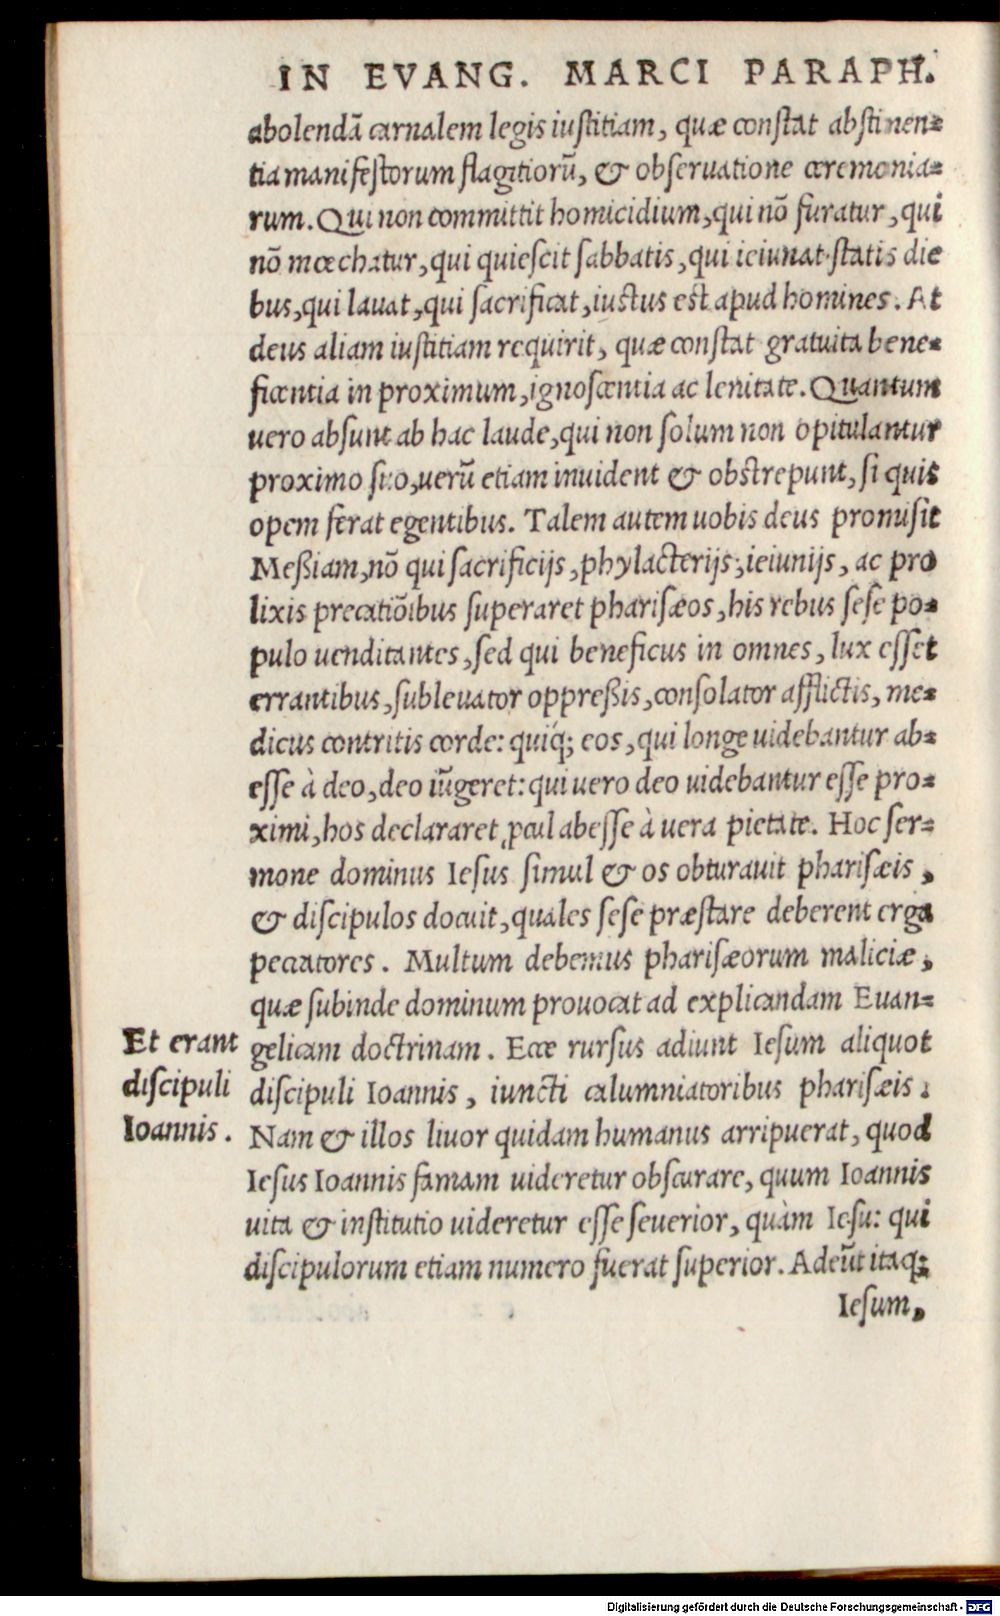 IN EVANG. MARCI PARAPH.
abolendā carnalem legis iustitiam, quæ constat abstinen=
tia manifestorum flagitiorū, & obseruatione cæremonia=
rum. Qui non committit homicidium, qui nō furatur, qui
nō mœchatur, qui quiescit sabbatis, qui ieiunat statis die
bus, qui lauat, qui sacrificat, iustus est apud homines. At
deus aliam iustitiam requirit, quæ constat gratuita bene=
ficentia in proximum, ignoscentia ac lenitate. Quantum
uero absunt ab hac laude, qui non solum non opitulantur
proximo suo, uerū etiam inuident & obstrepunt, si quis
opem ferat egentibus. Talem autem uobis deus promisit
Meßiam, nō qui sacrificijs, phylacterijs, ieiunijs, ac pro
lixis precatiōibus superaret pharisæos, his rebus sese po=
pulo uenditantes, sed qui beneficus in omnes, lux esset
errantibus, subleuator oppreßis, consolator afflictis, me=
dicus contritis corde: quiq́; eos, qui longe uidebantur ab=
esse à deo, deo iūgeret: qui uero deo uidebantur esse pro=
ximi, hos declararet ꝓcul abesse à uera pietate. Hoc ser=
mone dominus Iesus simul & os obturauit pharisæis,
& discipulos docuit, quales sese præstare deberent erga
peccatores. Multum debemus pharisæorum maliciæ,
quæ subinde dominum prouocat ad explicandam Euan=
gelicam doctrinam. Ecce rursus adiunt Iesum aliquot
discipuli Ioannis, iuncti calumniatoribus pharisæis.
Nam & illos liuor quidam humanus arripuerat, quod
Iesus Ioannis famam uideretur obscurare, quum Ioannis
uita & institutio uideretur esse seuerior, quàm Iesu: qui
discipulorum etiam numero fuerat superior. Adeūt itaq;
Iesum,
Et erant
discipuli
Ioannis.
Digitalisierung gefördert durch die Deutsche Forschungsgemeinschaft - DFG